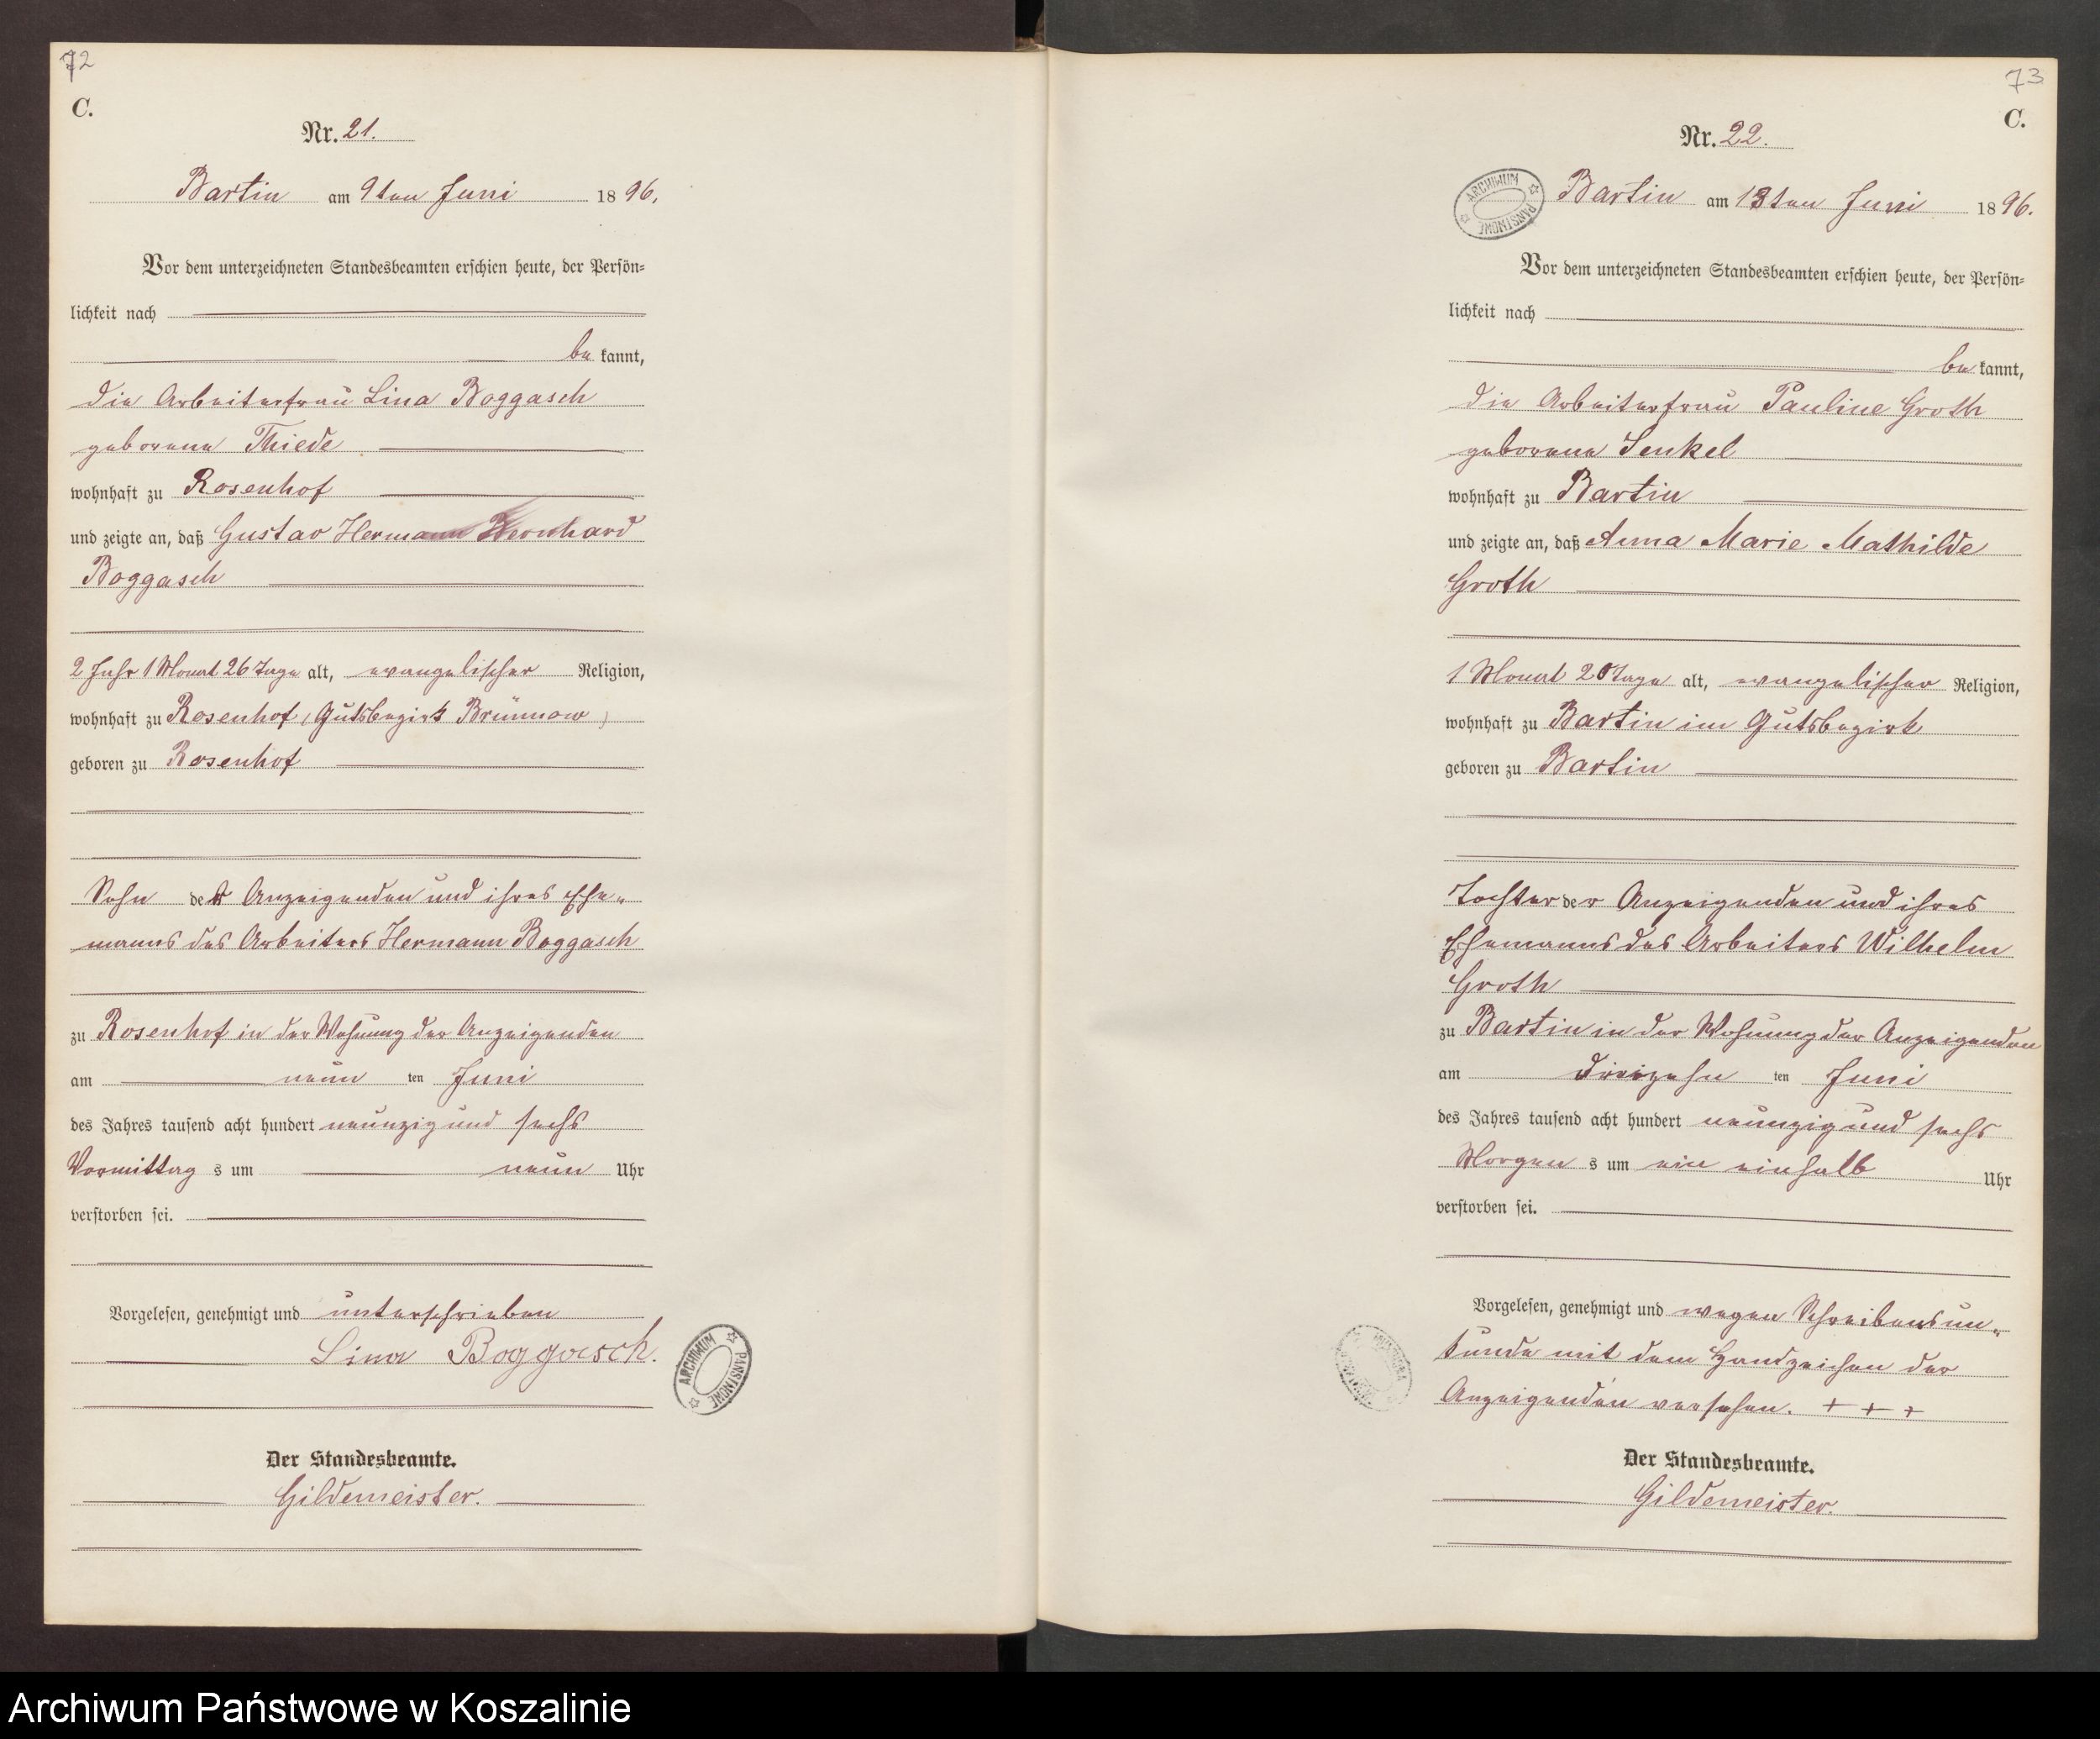 72
C.
Nr. 21.
Bartin am 9ten Juni 1896.
Vor dem unterzeichneten Standesbeamten erschien heute, der Persön-
lichkeit nach
be kannt,
die Arbeiterfrau Lina Boggasch
geborene Thiede
wohnhaft zu Rosenhof
und zeigte an, daß Gustav Hermann Bernhard
Boggasch
2 Jahr 1 Monat 26 Tage alt, evangelischer Religion,
wohnhaft zu Rosenhof (Gutsbezirk Brünnow)
geboren zu Rosenhof
Sohn der Anzeigenden und ihres Ehe-
manns des Arbeiters Hermann Boggasch
zu Rosenhof in der Wohnung der Anzeigenden
am neun ten Juni
des Jahres tausend acht hundert neunzig und sechs
Vormittag s um neun Uhr
verstorben sei.
Vorgelesen, genehmigt und unterschrieben
Lina Boggasch.
ARCHIWUM PAŃSTWOWE
Der Standesbeamte.
Gildemeister.
73
C.
Nr. 22.
ARCHIWUM PAŃSTWOWE
Bartin am 13ten Juni 1896.
Vor dem unterzeichneten Standesbeamten erschien heute, der Persön-
lichkeit nach
be kannt,
die Arbeiterfrau Pauline Groth
geborene Senkel
wohnhaft zu Bartin
und zeigte an, daß Anna Marie Mathilde
Groth
1 Monat 20 Tage alt, evangelischer Religion,
wohnhaft zu Bartin im Gutsbezirk
geboren zu Bartin
Tochter der Anzeigenden und ihres
Ehemanns des Arbeiters Wilhelm
Groth
zu Bartin in der Wohnung der Anzeigenden
am dreizehn ten Juni
des Jahres tausend acht hundert neunzig und sechs
Morgen s um ein einhalb Uhr
verstorben sei.
Vorgelesen, genehmigt und wegen Schreibensun-
kunde mit dem Handzeichen der
Anzeigenden versehen. + + +
Der Standesbeamte.
Gildemeister.
Archiwum Państwowe w Koszalinie